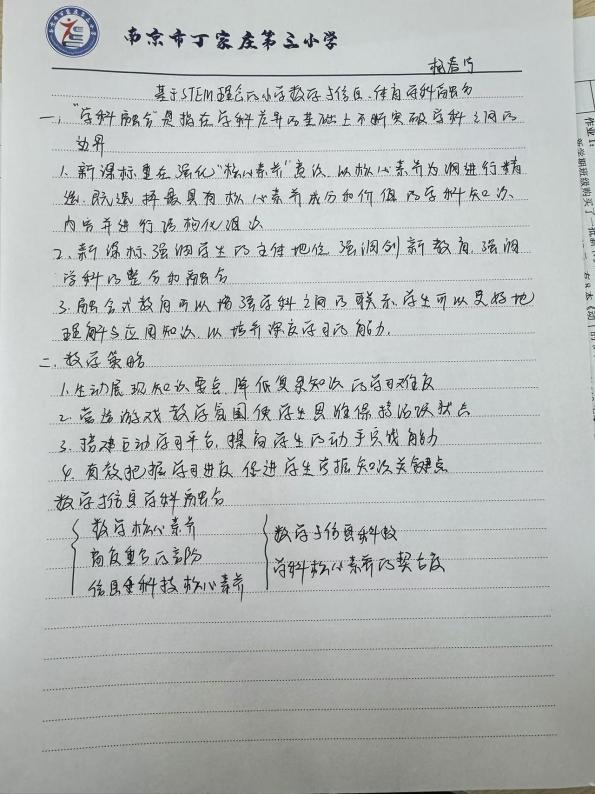 南京市丁家庄第三小学
杨春
基于STEM理念的小学数学与信息、体育学科融合
一、"学科融合"是指在学科差异的基础上不断突破学科之间的
边界
1. 新课标重在强化"核心素养"意识, 以核心素养为纲进行精
选, 既选择最具有核心素养成分和价值的学科知识、
内容并进行结构化
2. 新课标强调学生的主体地位, 强调创新教育, 强调
学科的整合和融合
3. 融合式教育可以增强学科之间的联系, 学生可以更好地
理解与应用知识, 以培养深度学习的能力.
二、教学策略
1. 生动展现知识要点, 降低复杂知识的学习难度
2. 营造游戏教学氛围使学生思维保持活跃状态
3. 搭建互动学习平台, 提高学生的动手实践能力
4. 有效把握学习进度, 促进学生掌握知识关键点
数学与信息学科融合
数学核心素养
数学与信息科技
高度重合的
学科核心素养的契合度
信息科技核心素养
作业1: